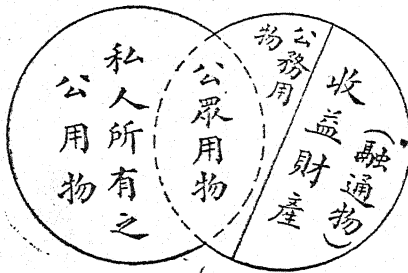 收益財產
(融通物)
公務用
物
公眾用物
私人所有之
公用物